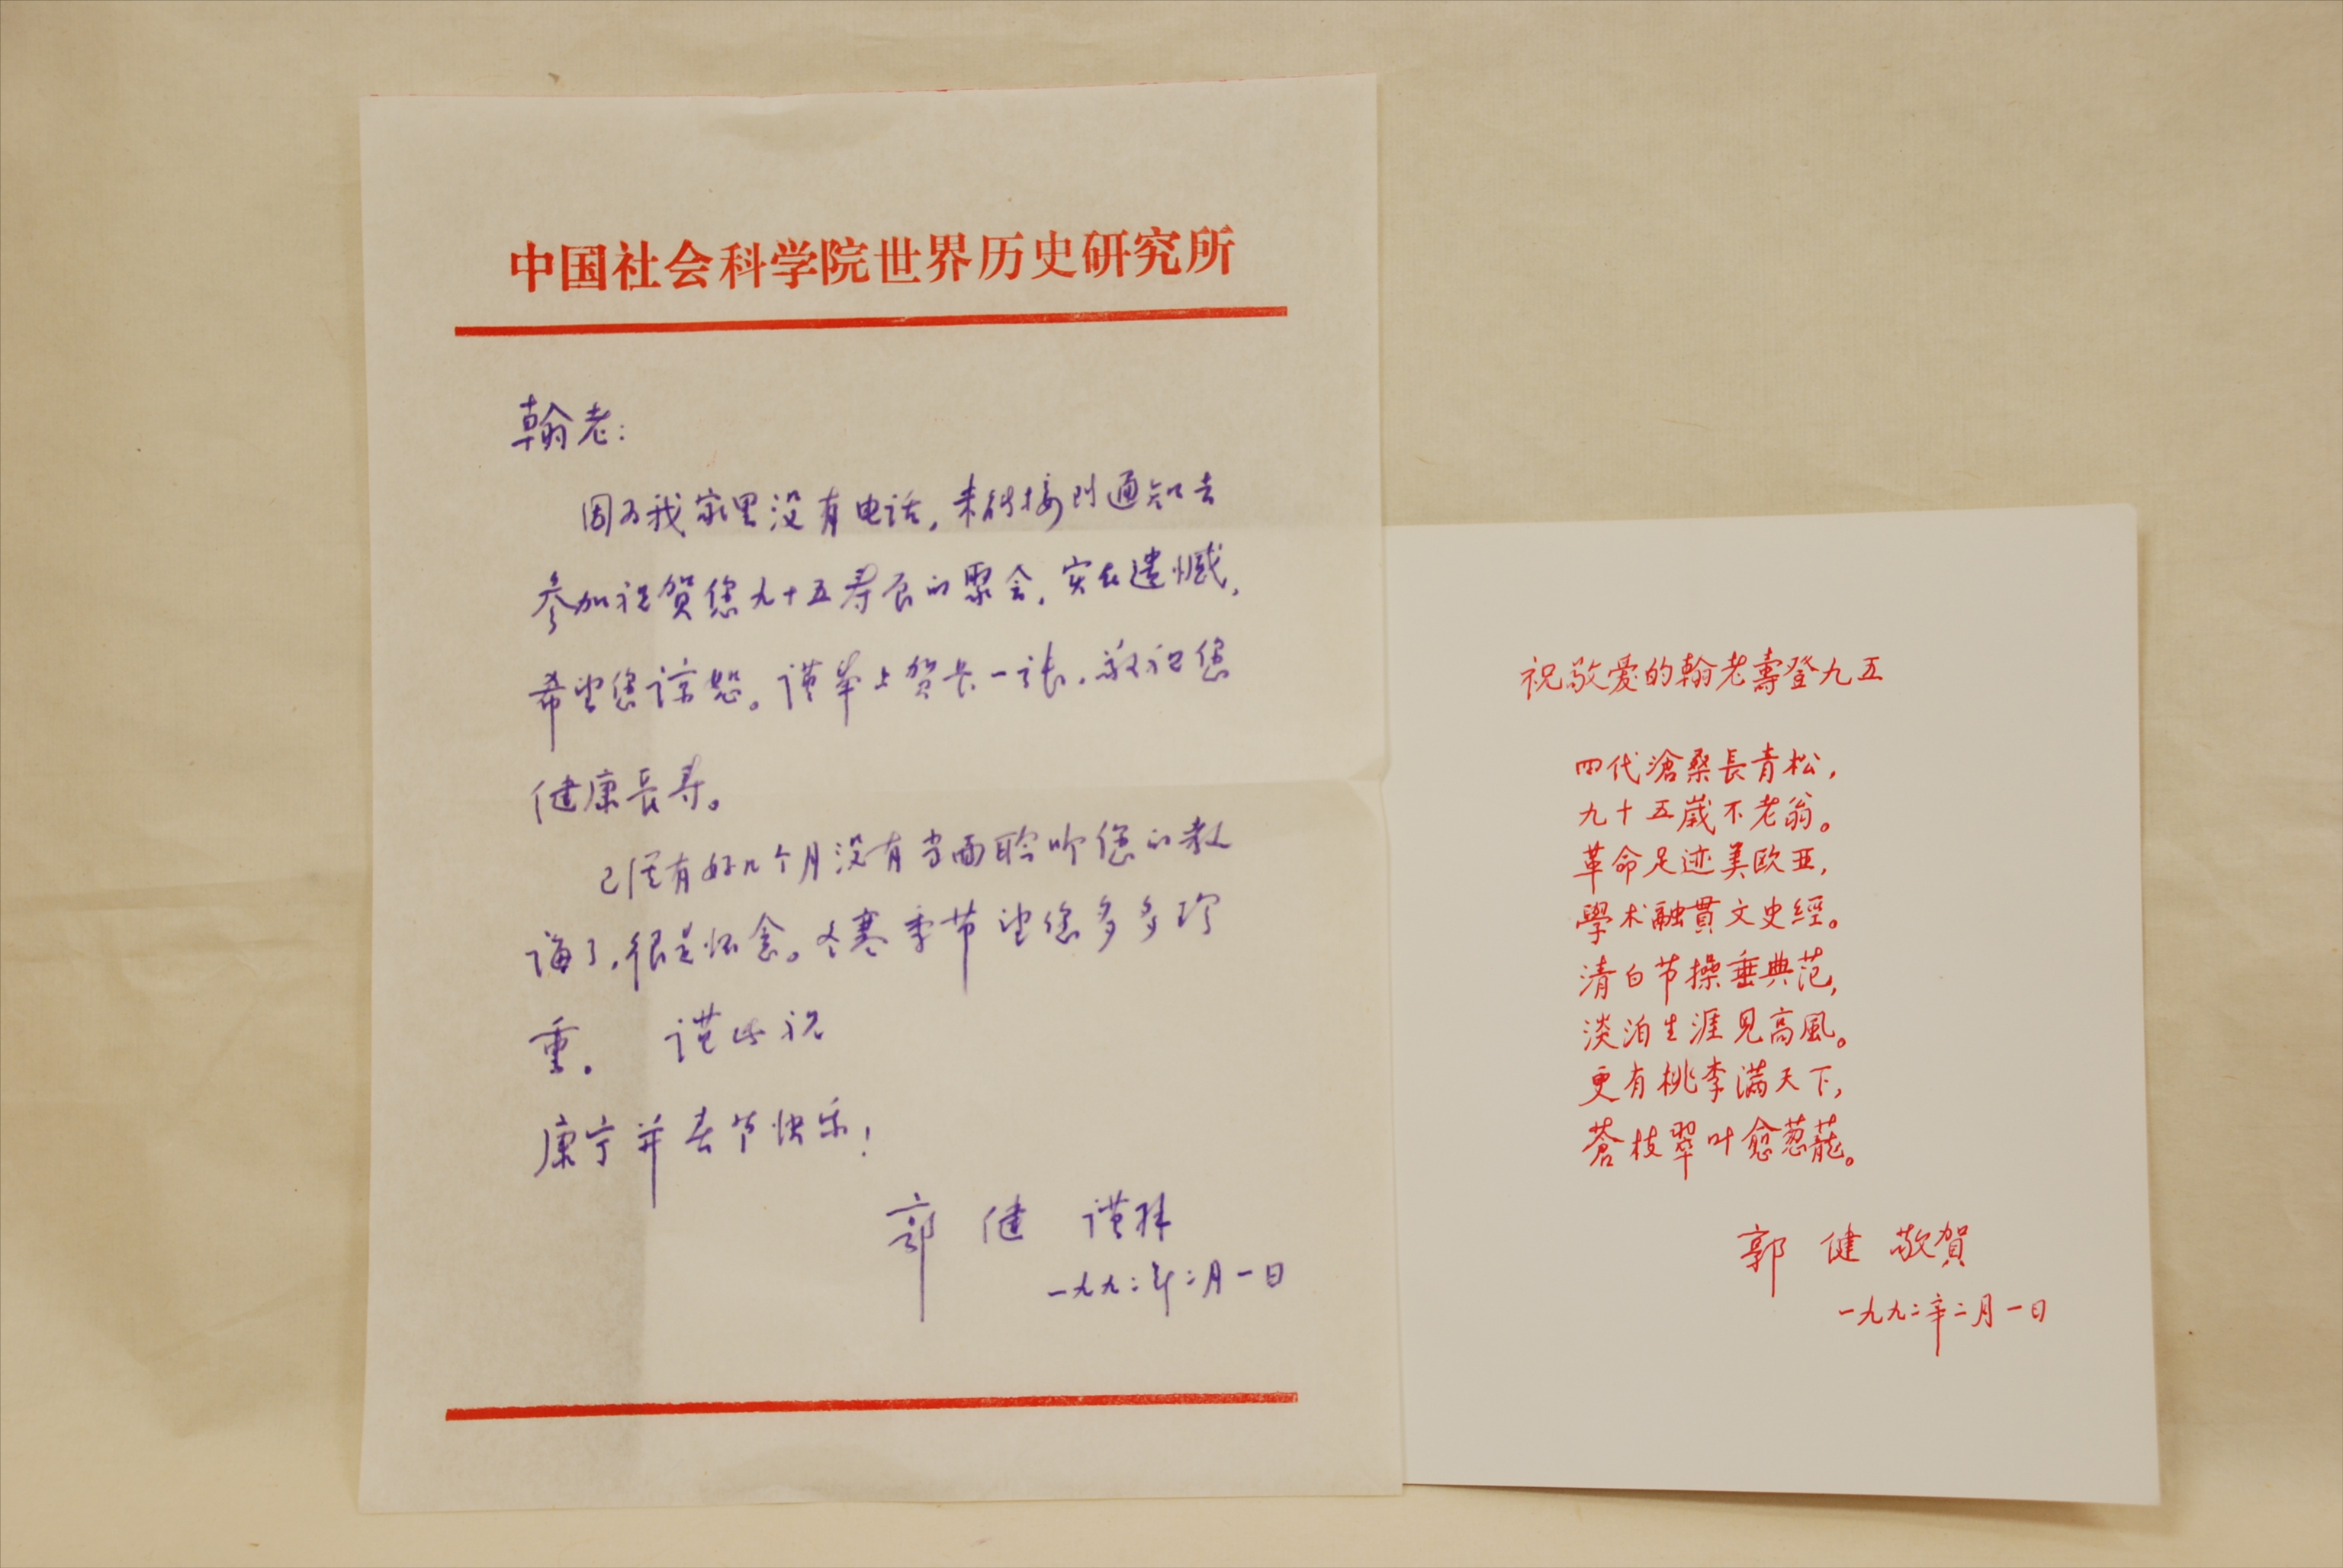 中国社会科学院世界历史研究所
翰老：
因为我家里没有电话，未能接到通知去
参加祝贺您九十五寿辰的聚会，实在遗憾，
希望您谅恕。谨奉上贺卡一张，敬祝您
健康长寿。
已经有好几个月没有当面聆听您的教
诲了，很是怀念。冬寒季节望您多多珍
重。 谨此祝
康宁并春节快乐！
郭 健 谨拜
一九九二年二月一日
祝敬爱的翰老壽登九五
四代滄桑長青松，
九十五歲不老翁。
革命足迹美欧亚，
學术融貫文史經。
清白节操垂典范，
淡泊生涯见高風。
更有桃李满天下，
蒼枝翠叶愈葱蘢。
郭 健 敬賀
一九九二年二月一日